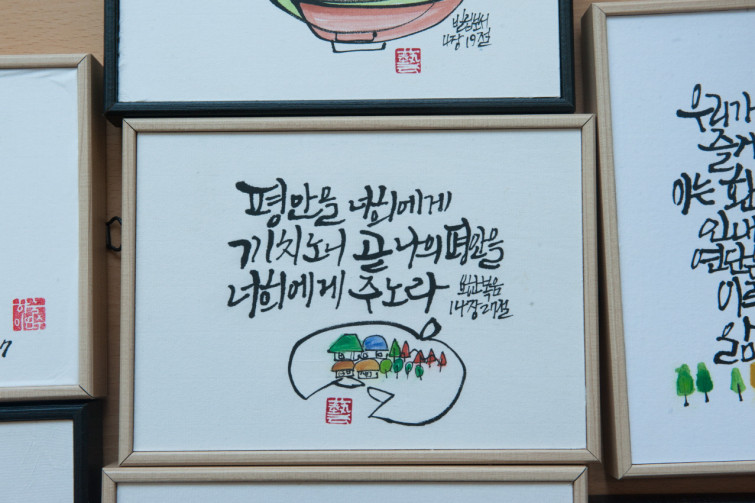 빌립보서
4장 19절
藝
평안을 너희에게
끼치노니 곧 나의 평안을
너희에게 주노라
요한복음
14장 27절
藝
우리가
즐거
이는 환
인내
연단